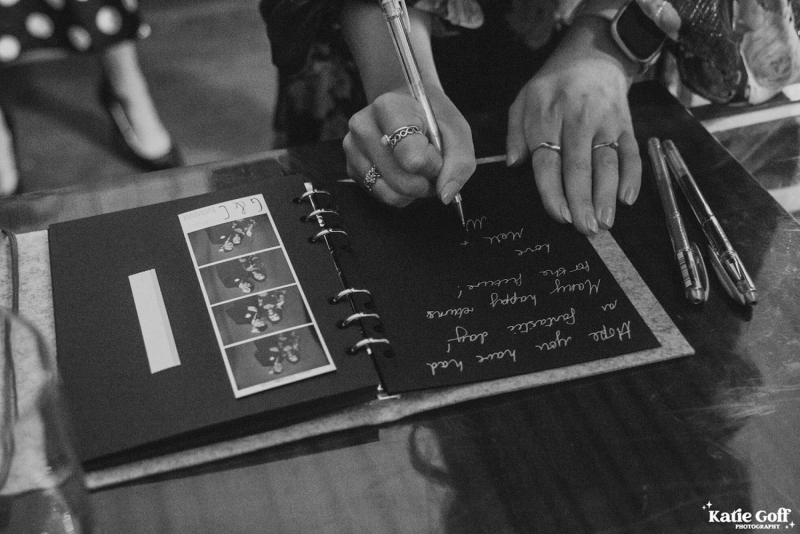 G & C
Hope you have had
an fantastic day!
Many happy returns
for the future!
love
+
Katie Goff
PHOTOGRAPHY